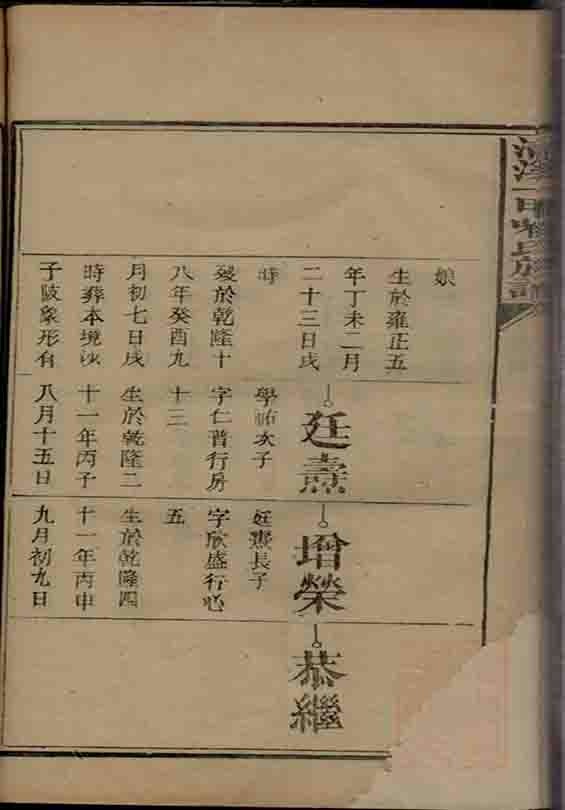 娘
生於雍正五
年丁未二月
二十三日戌
時
歿於乾隆十
八年癸酉九
月初七日戌
時葬本境沙
子陂象形有
廷燾
學祐次子
字仁普行房
十三
生於乾隆二
十一年丙子
八月十五日
增榮
廷燾長子
字欣盛行
五
生於乾隆四
十一年丙申
九月初九日
恭繼
氏族譜